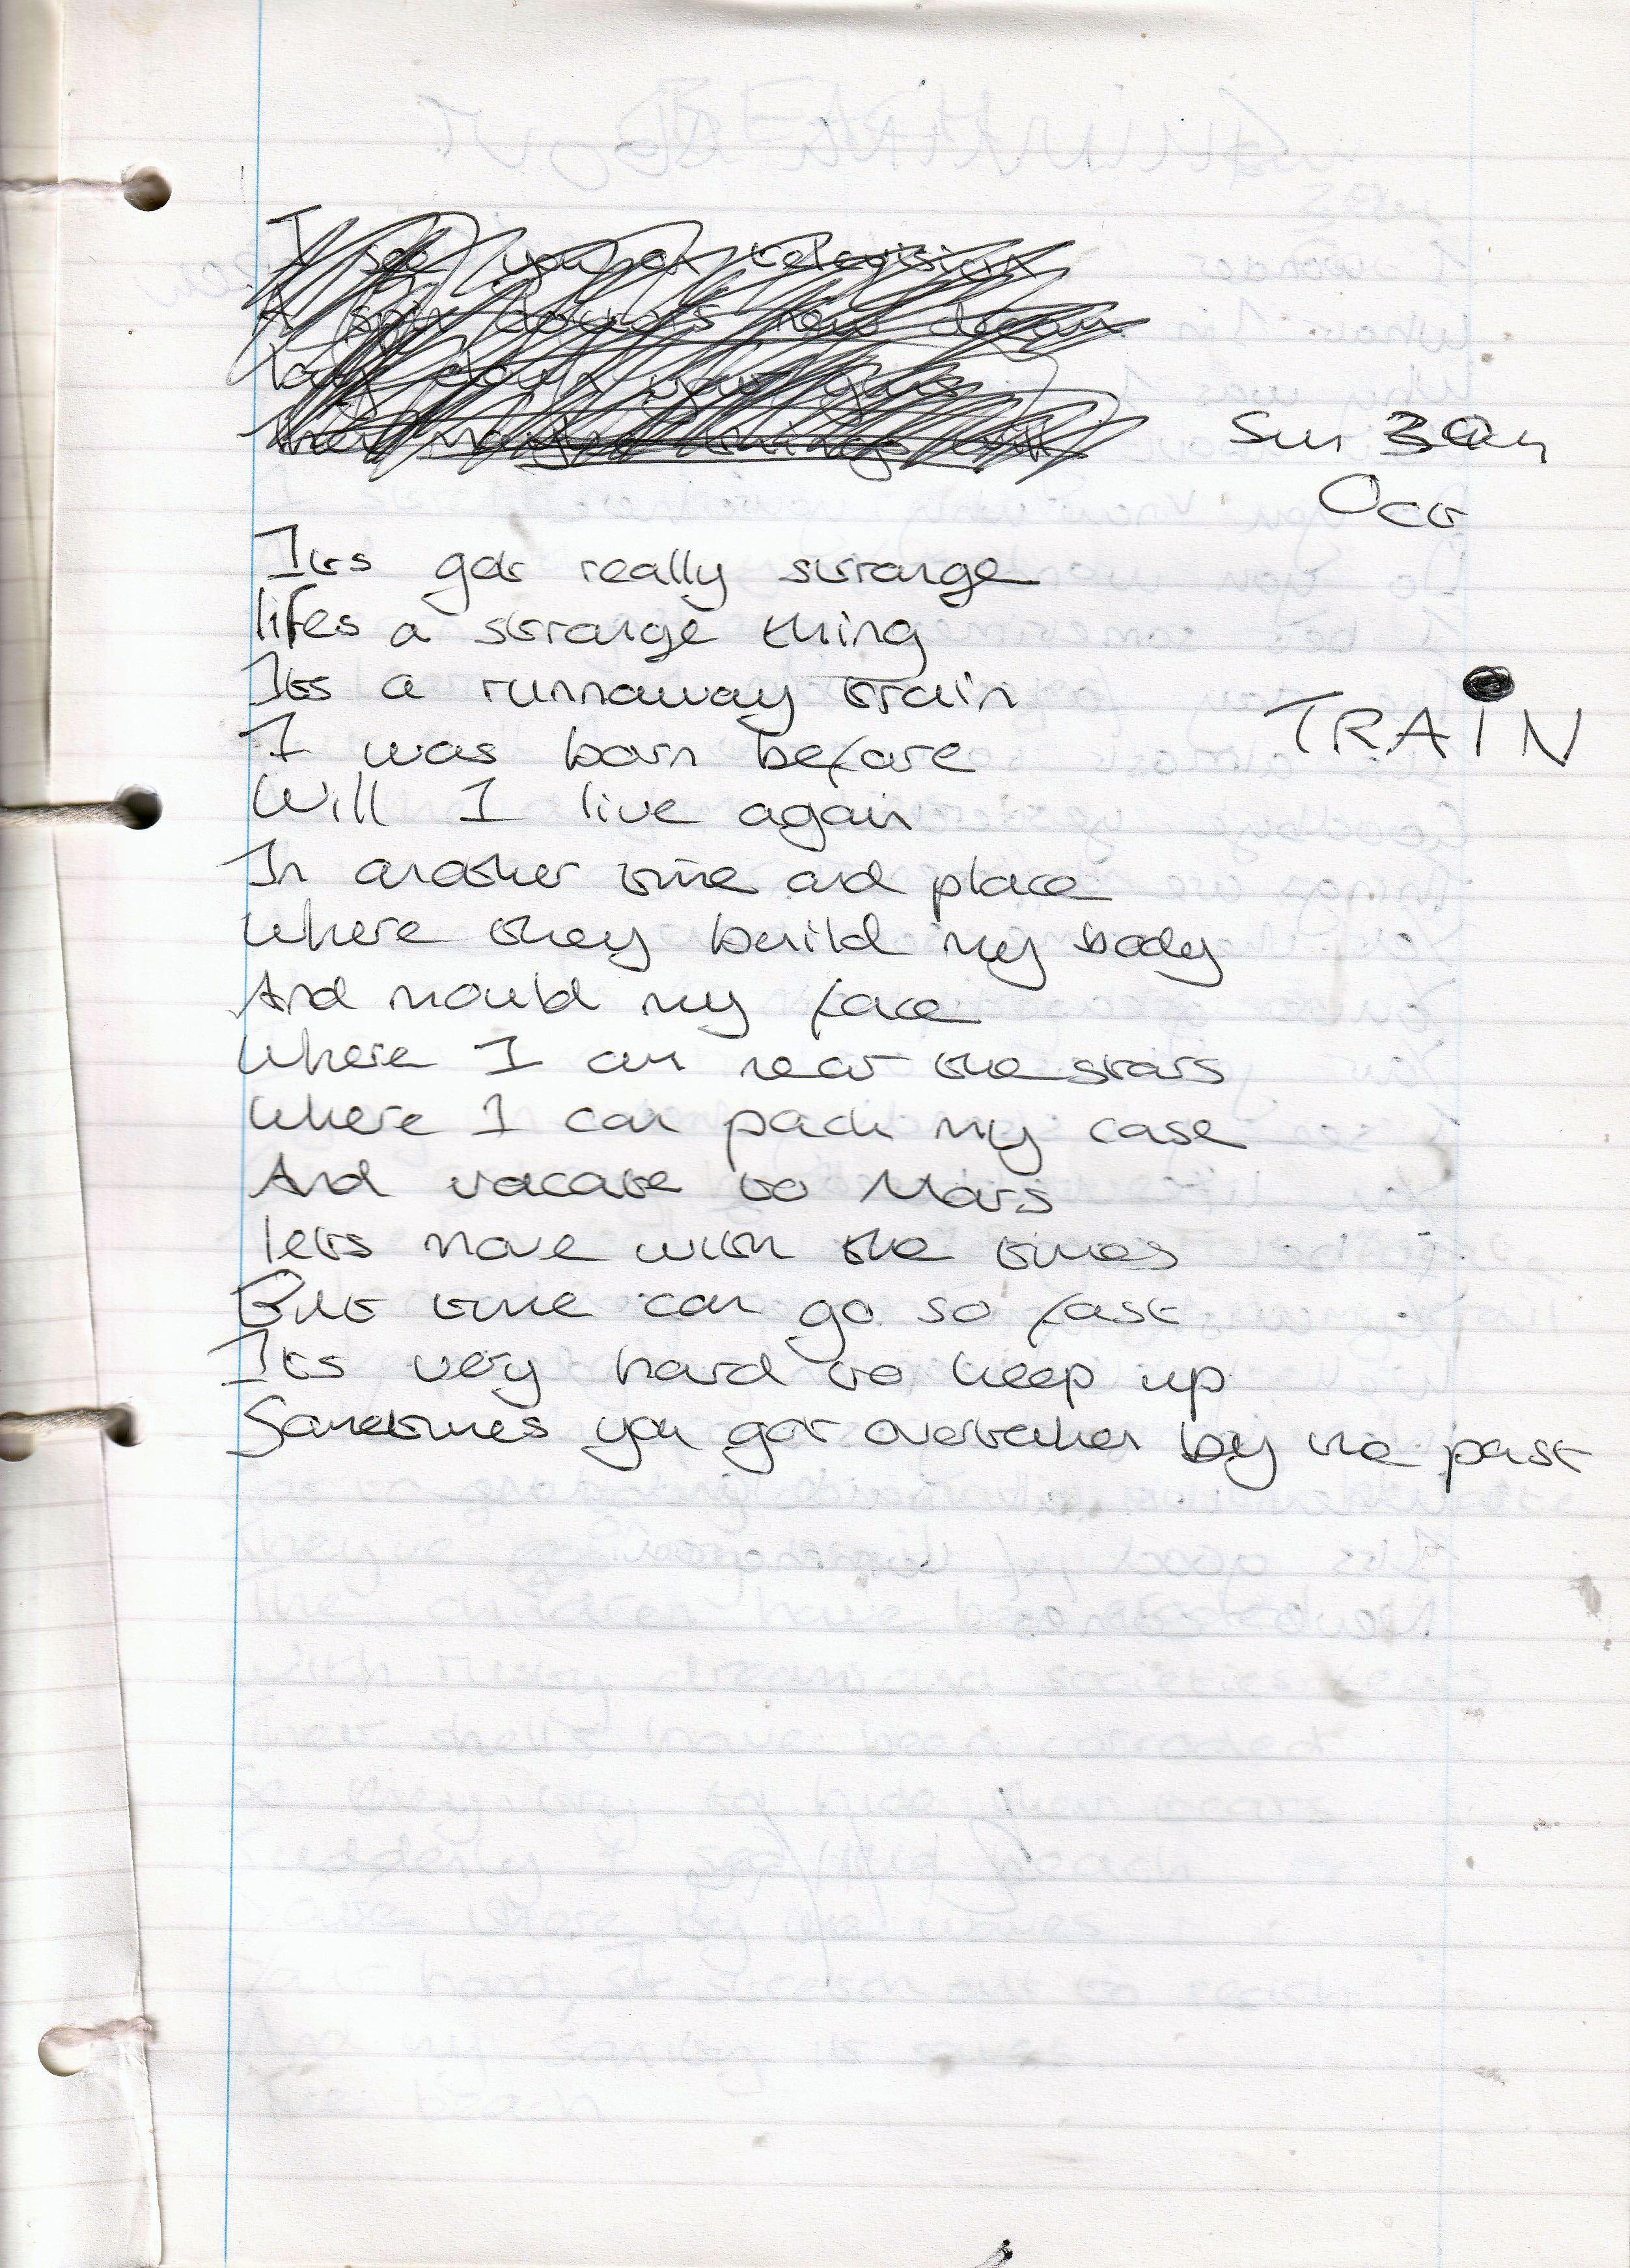 I see you on television
Sun 30th
Oct
Its got really strange
lifes a strange thing
Its a runnaway train
TRAiN
I was born before
Will I live again
In another time and place
Where they build my body
And mould my face
Where I am near the stars
Where I can pack my case
And vacate to Mars
lets move with the times
But time can go so fast
Its very hard to keep up
Sometimes you got overtaken by the past